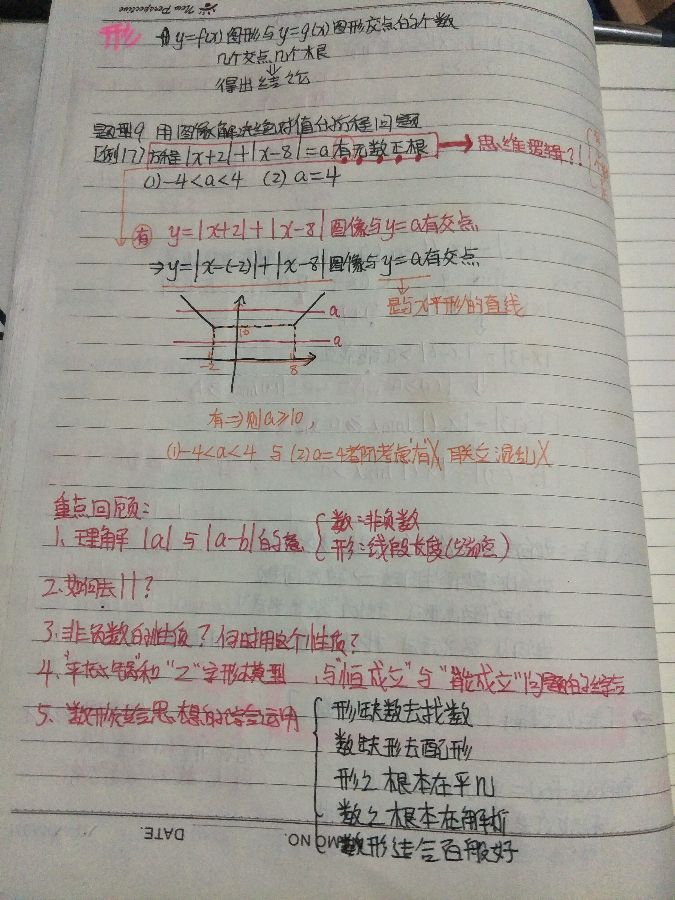 New Perspective
形 由y=f(x)图形与y=g(x)图形交点的个数
几个交点,几个根
得出结论
题型9 用图像解决绝对值分方程问题
[例17] 方程|x+2|+|x-8|=a有无数正根 思维逻辑?!
(1)-4<a<4 (2)a=4
有 y=|x+2|+|x-8|图像与y=a有交点
⇒y=|x-(-2)|+|x-8|图像与y=a有交点
是与x平形的直线
a
10
a
-2 8
有⇒则a≥10,
(1)-4<a<4 与(2)a=4者阿考虑"有"X 联立混乱X
重点回顾:
1、理解 |a| 与 |a-b|的意 { 数:非负数
形:线段长度(分端点)
2、如何去||?
3、非负数的性质?何时用这个性质?
4、"平底锅"和"Z"字形模型,与"恒成立"与"能成立"问题的结合
5、数形结合思想的综合运用 { 形缺数去找数
数缺形去配形
形之根本在平几
数之根本在解析
数形结合百般好
MO NO. DATE.